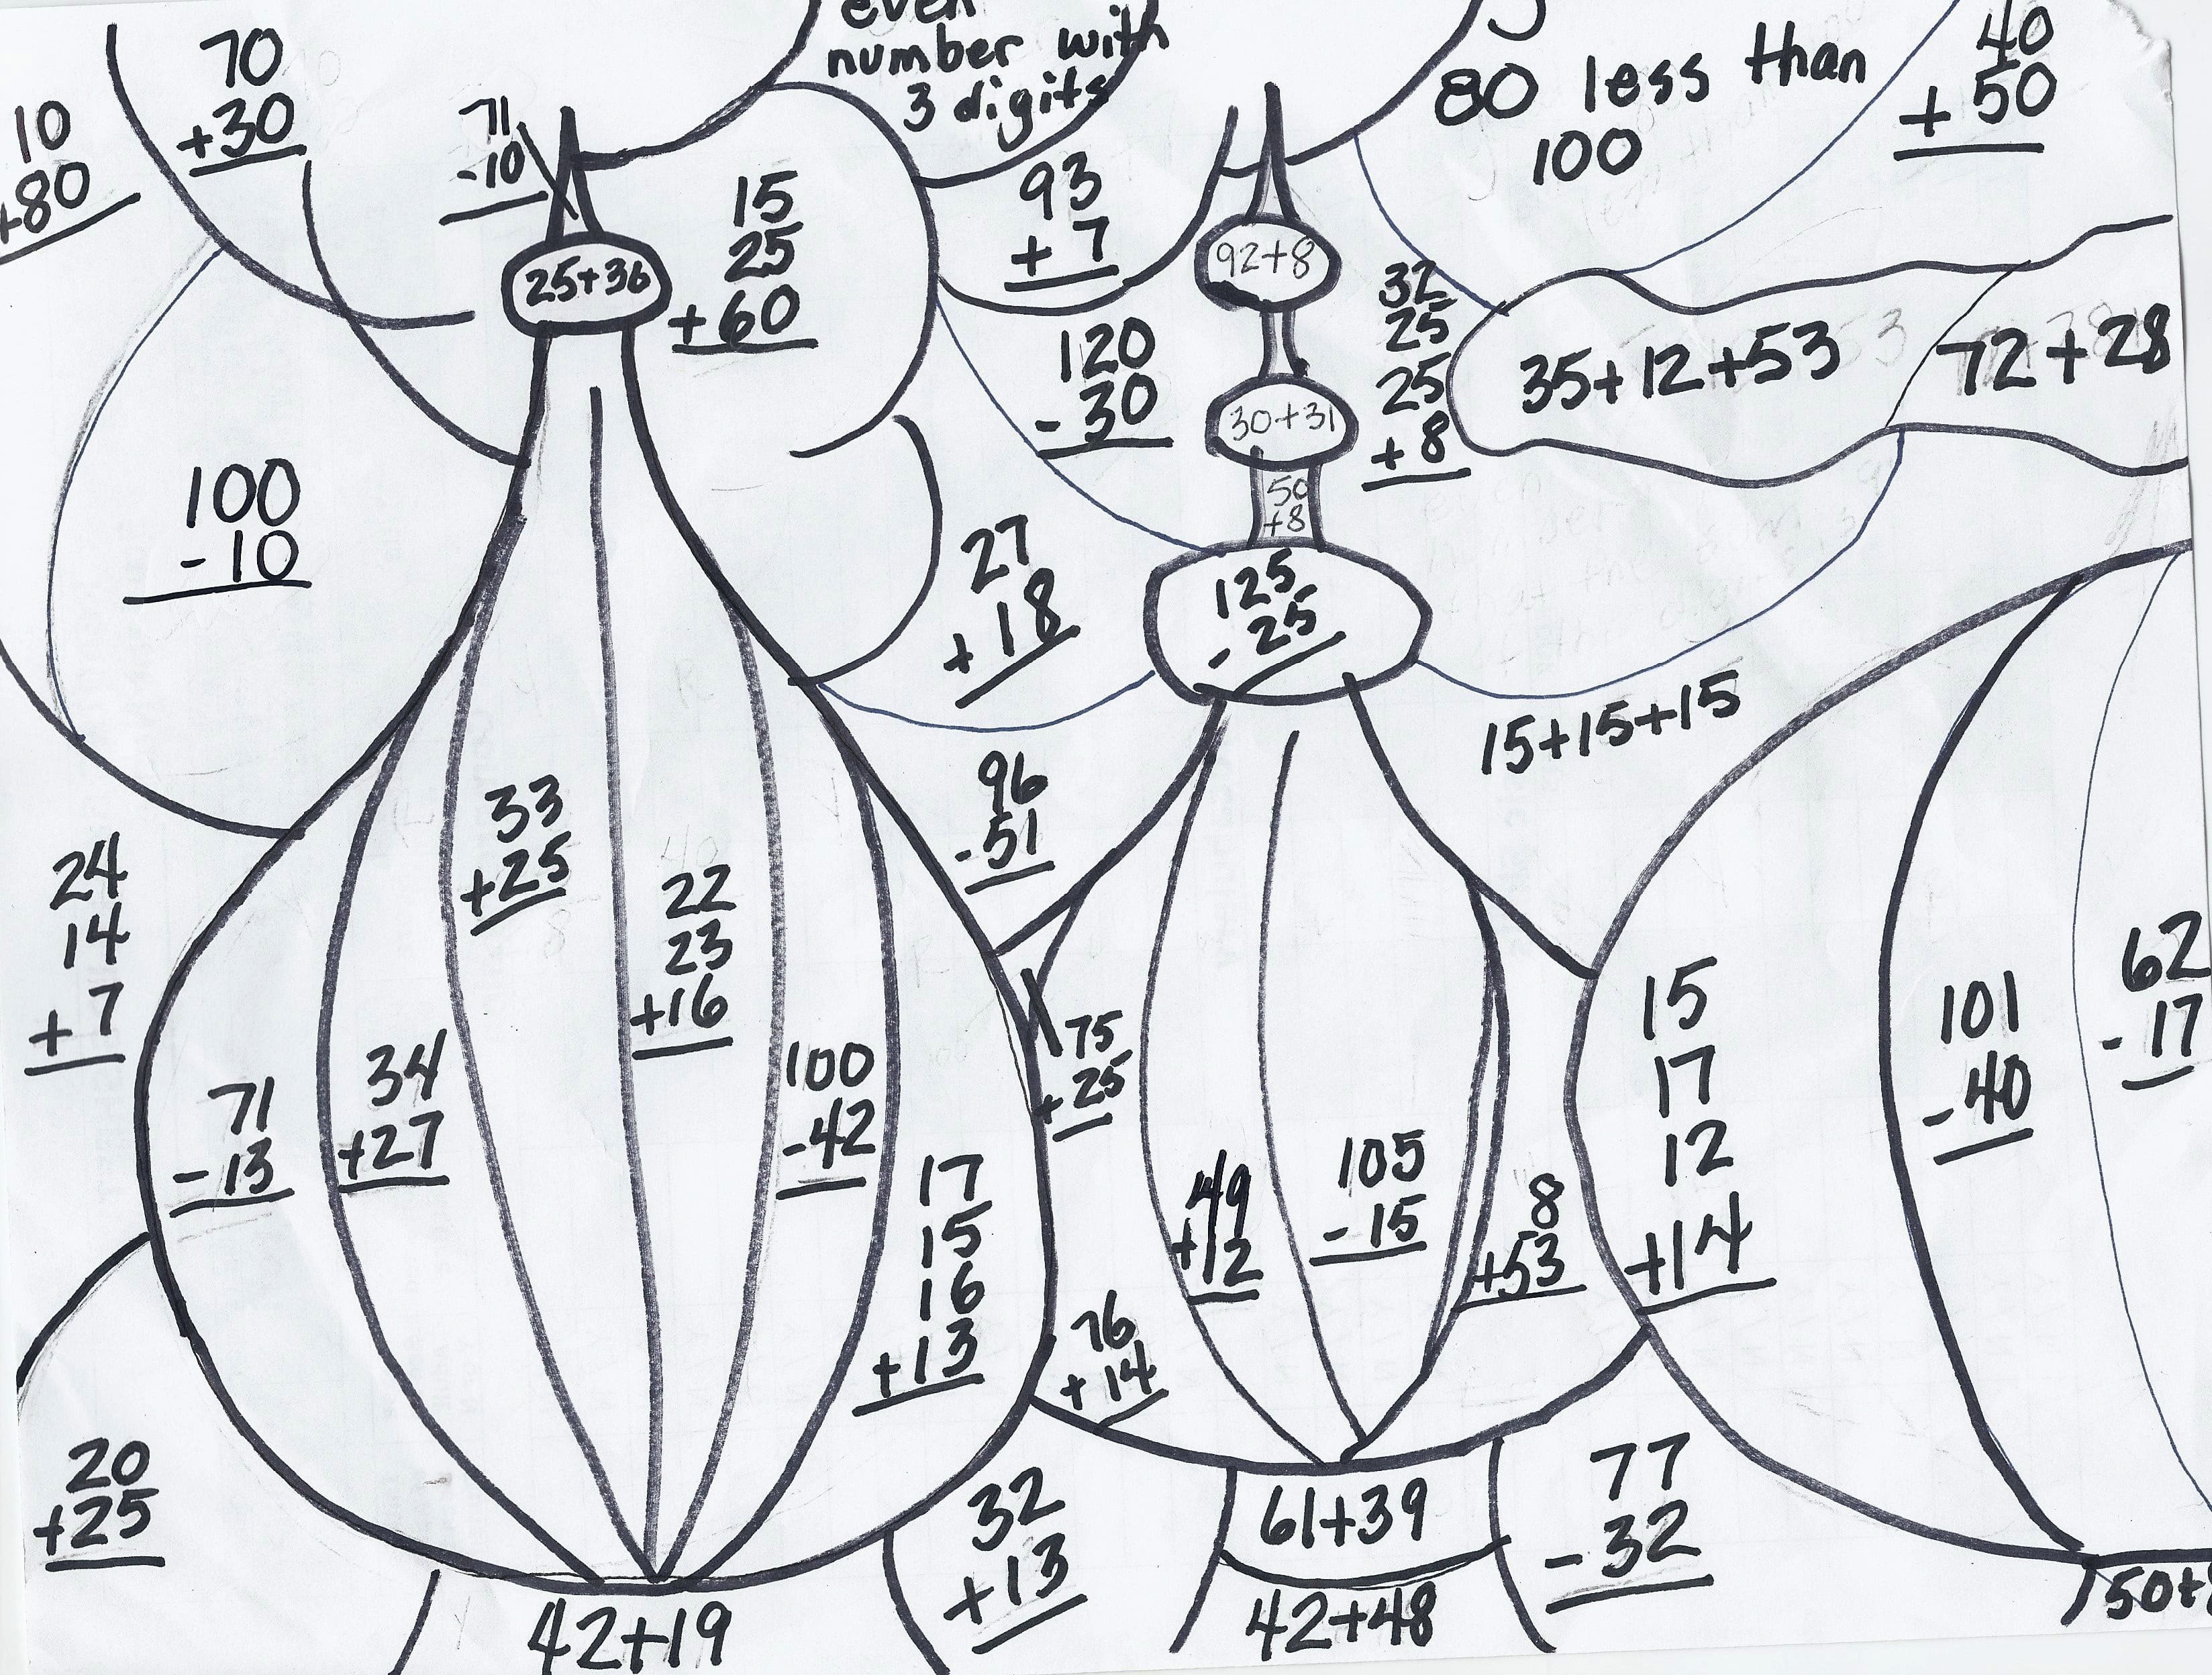 even
number with
3 digits
80 less than
100
40
+ 50
70
+30
10
+80
71
-10
15
25
+60
93
+ 7
92+8
25+36
120
- 30
32
25
25
+ 8
35+12+53
72+28
30+31
50
+8
100
- 10
27
+ 18
125
- 25
15+15+15
96
- 51
33
+25
24
14
+ 7
22
23
+16
34
+27
71
- 13
100
- 42
75
+ 25
17
15
16
+ 13
49
+12
105
- 15
8
+53
15
17
12
+14
101
- 40
62
- 17
76
+ 14
20
+25
32
+ 13
61+39
77
- 32
42+19
42+48
50+